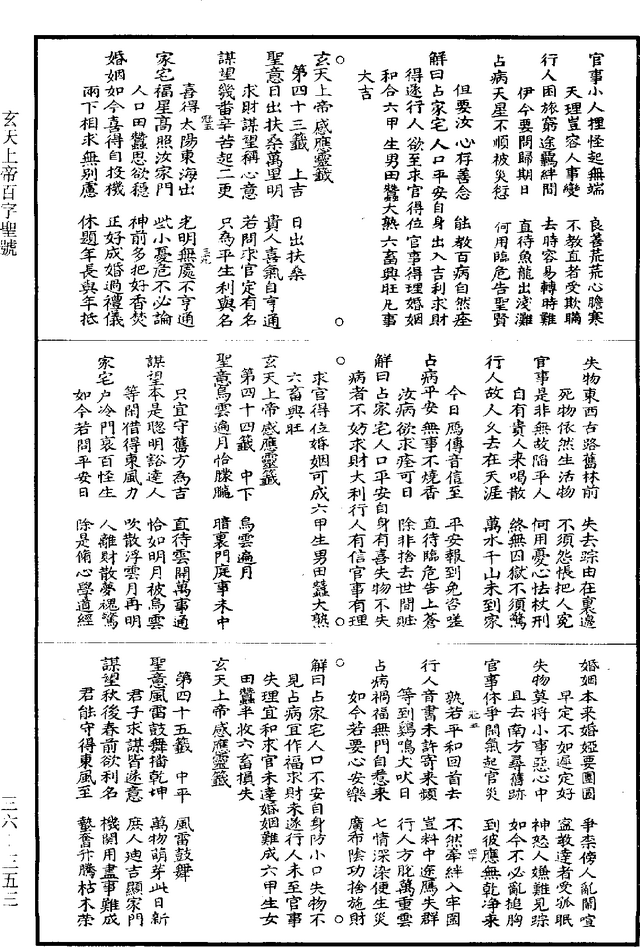 官事小人捏怪起無端　良善荒荒心膽寒
天理豈容人事變　不教直者受欺瞞
行人困旅窮途羈絆間　去時容易轉時難
伊今要問歸期日　直待魚龍出淺灘
占病天星不順被災愆　何用臨危告聖賢
但要汝心存善念　能教百病自然痊
解曰占家宅人口平安自身出入吉利求財
得遂行人欲至求官得位官事得理婚姻
和合六甲生男田蠶大熟六畜興旺凡事
大吉
○　○
玄天上帝感應靈籤
第四十三籤　上吉　日出扶桑
聖意日出扶桑萬里明　貴人喜氣自亨通
求財謀望稱心意　若問求官定有名
謀望幾番辛苦起二更　只為平生利與名
冠五　三九
喜得太陽東海出　光明無處不亨通
家宅福星高照汝家門　些小憂危不必論
人口田蠶思欲穩　神前多把好香焚
婚姻如今喜得自投機　正好成婚過禮儀
兩下相求無別慮　休題年長與年抵
失物東西古路舊林前　失去踪由在裏邊
死物依然生活物　不須怨悵把人冤
官事是非無故陷平人　何用憂心怯杖刑
自有貴人來喝散　終無囚獄不須驚
行人故人久去在天涯　萬水千山未到家
今日鴈傳音信至　平安報到免咨嗟
占病平安無事不燒香　直待臨危告上蒼
汝病欲求痊可日　除非捨去世間賍
解曰占家宅人口平安自身有喜失物不失
病者不妨求財大利行人有信官事有理
求官得位婚姻可成六甲生男田蠶大熟
六畜興旺
○　○
玄天上帝感應靈籤
第四十四籤　中下　烏雲遍月
聖意烏雲遍月恰朦朧　暗裏門庭事未中
只宜守舊方為吉　直待雲開萬事通
謀望本是聰明豁達人　恰如明月被烏雲
等閑借得東風力　吹散浮雲月再明
家宅户冷門衰百怪生　人離財散夢魂驚
如今若問平安日　除是脩心學道經
婚姻本來婚婭要團圓　爭柰傍人亂鬧喧
早定不如遲定好　寍教達者受孤眠
失物莫將小事惡心中　神怒人嫌難見踪
且去南方尋舊跡　如今不必亂搥胸
官事休爭閑氣起官災　到彼應無乾淨來
冠五　四十
孰若平和回首去　不然牽絆入牢圄
行人音書未許寄來頻　豈料中途鴈失群
等到鷄鳴犬吠日　行人方脫萬重雲
占病禍福無門自惹來　七情深染便生災
如今若要心安樂　廣布陰功捨施財
解曰占家宅人口不安自身防小口失物不
見占病宜作福求財未遂行人未至官事
失理宜和求官未達婚姻難成六甲生女
田蠶半收六畜損失
○　○
玄天上帝感應靈籤
第四十五籤　中平　風雷鼓舞
聖意風雷鼓舞播乾坤　萬物萌芽此日新
君子求謀皆遂意　庶人迪吉顯家門
謀望秋後春前欲利名　機關用盡事難成
君能守得東風至　蟄奮升騰枯木榮
玄天上帝百字聖號
三六‧三五三